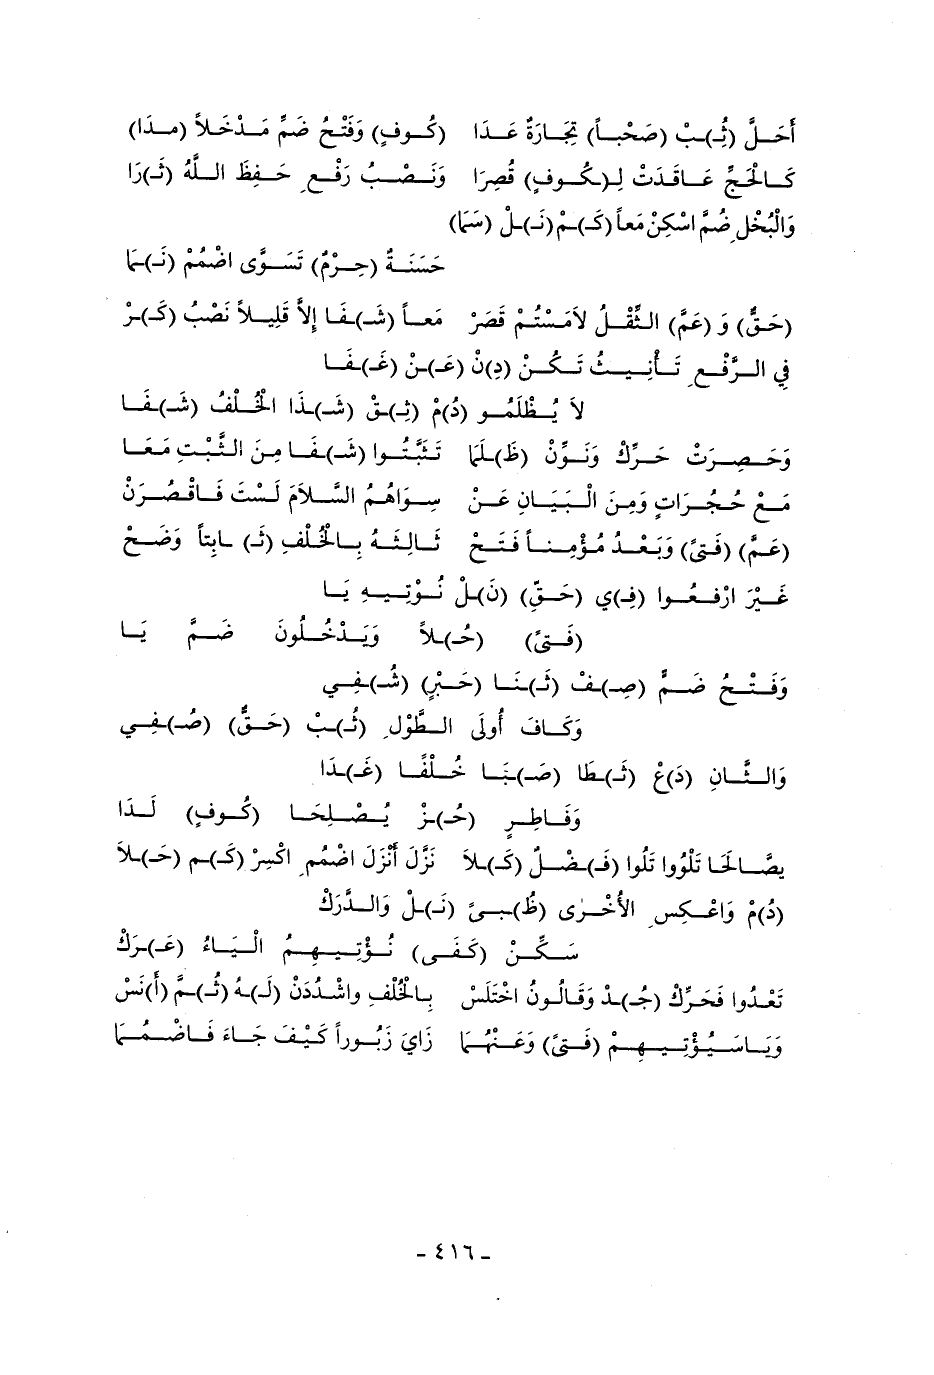 أَحَلَّ (ثُـ)ـبْ (صَحْبـاً) تِجَارَةً عَـدَا (كُـوفٍ) وَفَتْحُ ضَمِّ مَـدْخَلاً (مَـدَا)
كَـالْحَجِّ عَـاقَدَتْ لِـ(ـكُـوفٍ) قُصِرَا وَنَـصْـبُ رَفْـعِ حَـفِظَ الـلَّهُ (ثَـ)ـرَا
وَالْبُخْلِ ضُمَّ اسْكِنْ مَعاً (كَـ)ـمْ (نَـ)ـلْ (سَمَا)
حَسَنَـةٌ (حِـرْمٌ) تَسَـوَّى اضْمُمْ (نَـ)ـمَا
(حَـقٌّ) وَ (عَمَّ) الثِّقْـلُ لاَمَسْتُـمْ قَصَرْ مَعـاً (شَـ)ـفَـا إِلاَّ قَلِيـلاً نَصْبُ (كَـ)ـرْ
فِي الـرَّفْـعِ تَـأْنِيـثُ تَـكُـنْ (دِ)نْ (عَـ)ـنْ (غَـ)ـفَـا
لاَ يُـظْلَمُـو (دُ)مْ (ثِـ)ـقْ (شَـ)ـذَا الْخُلْفُ (شَـ)ـفَـا
وَحَـصِـرَتْ حَـرِّكْ وَنَـوِّنْ (ظَـ)ـلَعَا تَثَبَّتُـوا (شَـ)ـفَـا مِـنَ الثَّبْـتِ مَـعَـا
مَـعْ حُـجُـرَاتٍ وَمِـنَ الْـبَيَـانِ عَـنْ سِـوَاهُـمُ السَّـلاَمَ لَسْتَ فَـاقْصُـرَنْ
(عَـمَّ) (فَـتىً) وَبَعْـدُ مُـؤْمِنـاً فَتَـحْ ثَـالِثَـهُ بِـالْخُلْفِ (ثَـ) ـابِتاً وَضَـحْ
غَـيْرَ ارْفَـعُـوا (فِـ)ـي (حَـقِّ) (نَـ)ـلْ نُـؤْتِيـهِ يَـا
(فَـتىً) (حَـ)ـلاَ وَيَـدْخُلُـونَ ضَـمُّ يَـا
وَفَـتْـحُ ضَـمٍّ (صِـ)ـفْ (ثَـ)ـنَـا (حَـبْرٍ) (شُـ)ـفِـي
وَكَـافَ أُولَى الـطَّوْلِ (ثُـ)ـبْ (حَـقٌّ) (صُـ)ـفِـي
وَالـثَّـانِ (دَ)عْ (ثَـ)ـطَا (صَـ)ـبَـا خُـلْفَـا (غَـ)ـدَا
وَفَـاطِـرٍ (حُـ)ـزْ يُـصْـلِحَـا (كُـوفٍ) لَـدَا
يَصَّـالَحَا تَلْوُوا تَلُوا (فَـ)ـضْـلٌ (كَـ)ـلاَ نُزِّلَ أُنْزِلَ اضْمُمِ اكْسِرْ (كَـ)ـمْ (حَـ)ـلاَ
(دُ)مْ وَاعْـكِسِ الأُخْـرَى (ظُـ)ـبىً (نَـ)ـلْ وَالـدَّرَكْ
سَـكِّـنْ (كَـفَـى) نُـؤْتِـيـهِـمُ الْيَـاءُ (عَـ)ـرَكْ
تَعْـدُوا فَحَـرِّكْ (جُـ)ـدْ وَقَـالُـونُ اخْتَلَسْ بِـالْخُلْفِ وَاشْـدُدْنْ (لَـ)ـهُ (ثُـ)ـمَّ (أَ)نَسْ
وَيَـا سَـيُـؤْتِـيـهِـمْ (فَـتىً) وَعَـنْهُمَا زَايَ زَبُـوراً كَيْفَ جَـاءَ فَـاضْمُـمَا
- ٤١٦ -